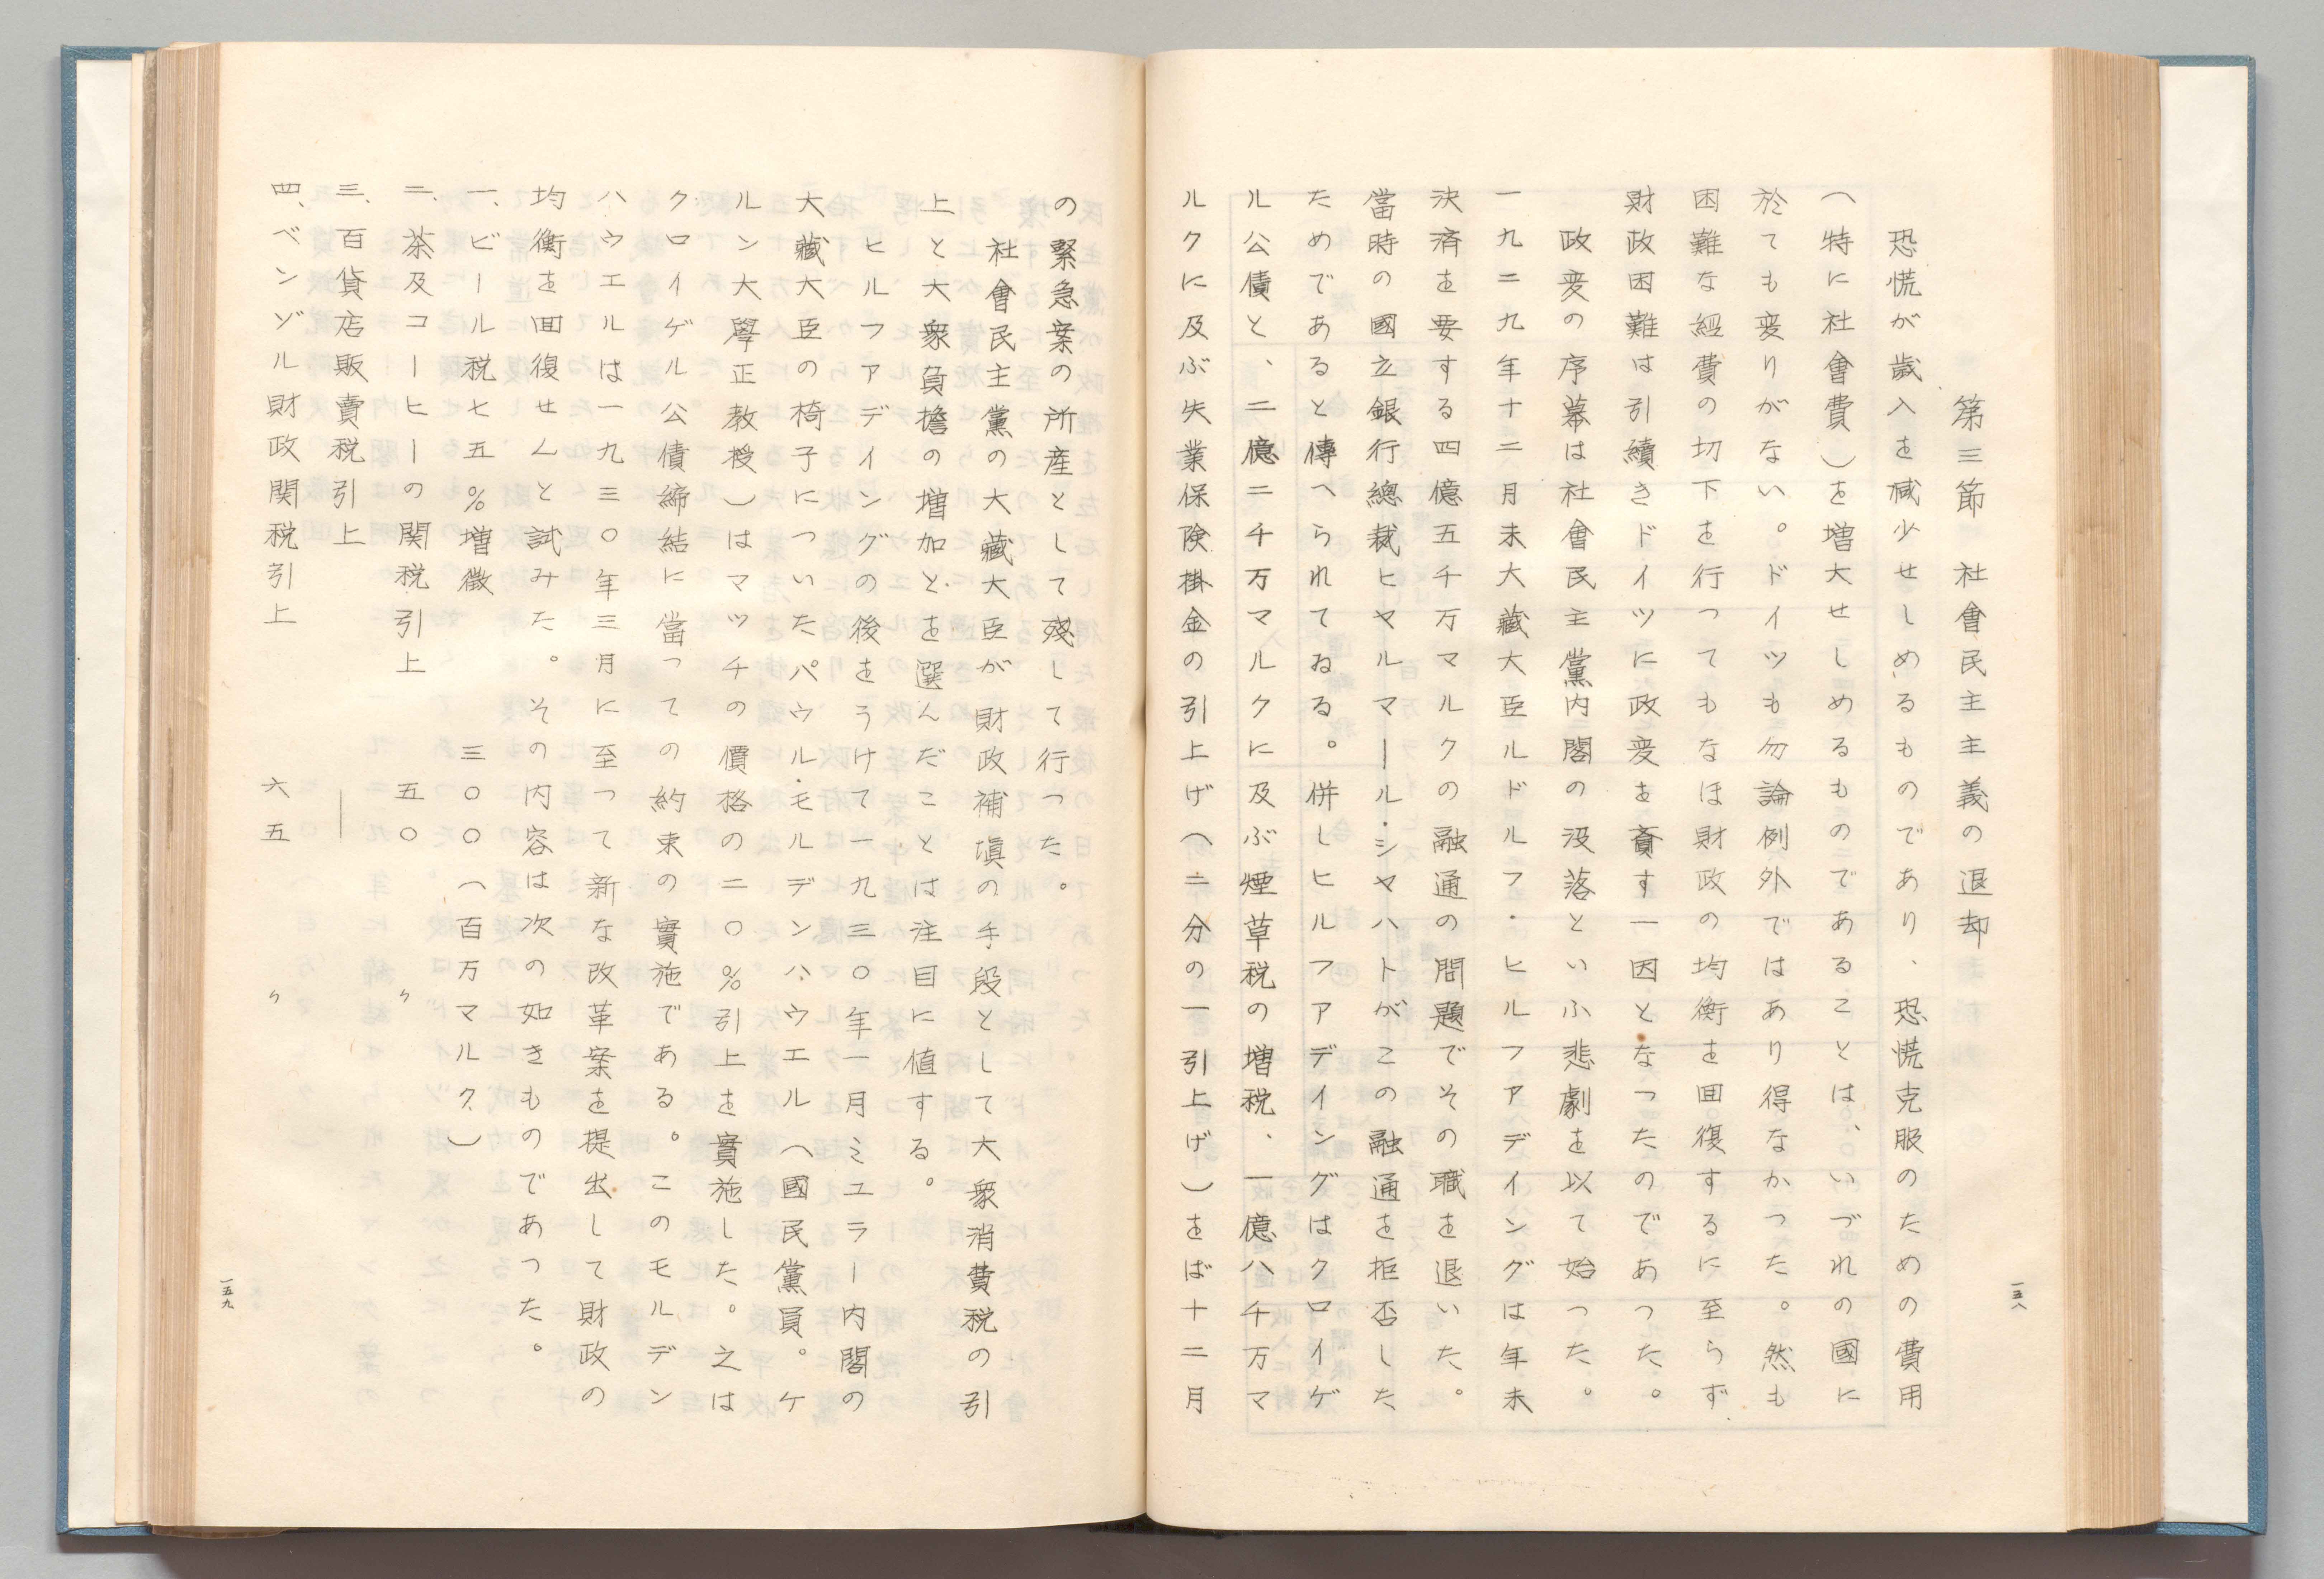 第三節　社會民主主義の退却
恐慌が歳入を減少せしめるものであり、恐慌克服のための費用
（特に社會費）を増大せしめるものであることは、いづれの國に
於ても変りがない。ドイツも勿論例外ではあり得なかつた。然も
困難な經費の切下を行つてもなほ財政の均衡を囬復するに至らず
財政困難は引續きドイツに政変を齎す一因となつたのであつた。
政変の序幕は社會民主黨内閣の没落といふ悲劇を以て始つた。
一九二九年十二月末大藏大臣ルドルフ・ヒルフアデイングは年末
決済を要する四億五千万マルクの融通の問題でその職を退いた。
當時の國立銀行總裁ヒヤルマール・シヤハトがこの融通を拒否した
ためであると傳へられてゐる。併しヒルフアデイングはクロイゲ
ル公債と、二億二千万マルクに及ぶ煙草税の増税、一億八千万マ
ルクに及ぶ失業保険掛金の引上げ（二分の一引上げ）をば十二月
一五八
の緊急案の所産として残して行つた。
社會民主黨の大藏大臣が財政補塡の手段として大衆消費税の引
上と大衆負擔の増加とを選んだことは注目に値する。
ヒルフアデイングの後をうけて一九三〇年一月ミユラー内閣の
大藏大臣の椅子についたパウル・モルデンハウエル（國民黨員。ケ
ルン大學正教授）はマツチの價格の二〇％引上を實施した。之は
クロイゲル公債締結に當つての約束の實施である。このモルデン
ハウエルは一九三〇年三月に至つて新な改革案を提出して財政の
均衡を囬復せんと試みた。その内容は次の如きものであつた。
一、ビール税七五％増徴　三〇〇（百万マルク）
二、茶及コーヒーの関税引上　五〇　〃
三、百貨店販賣税引上　―
四、ベンゾル財政関税引上　六五　〃
一五九